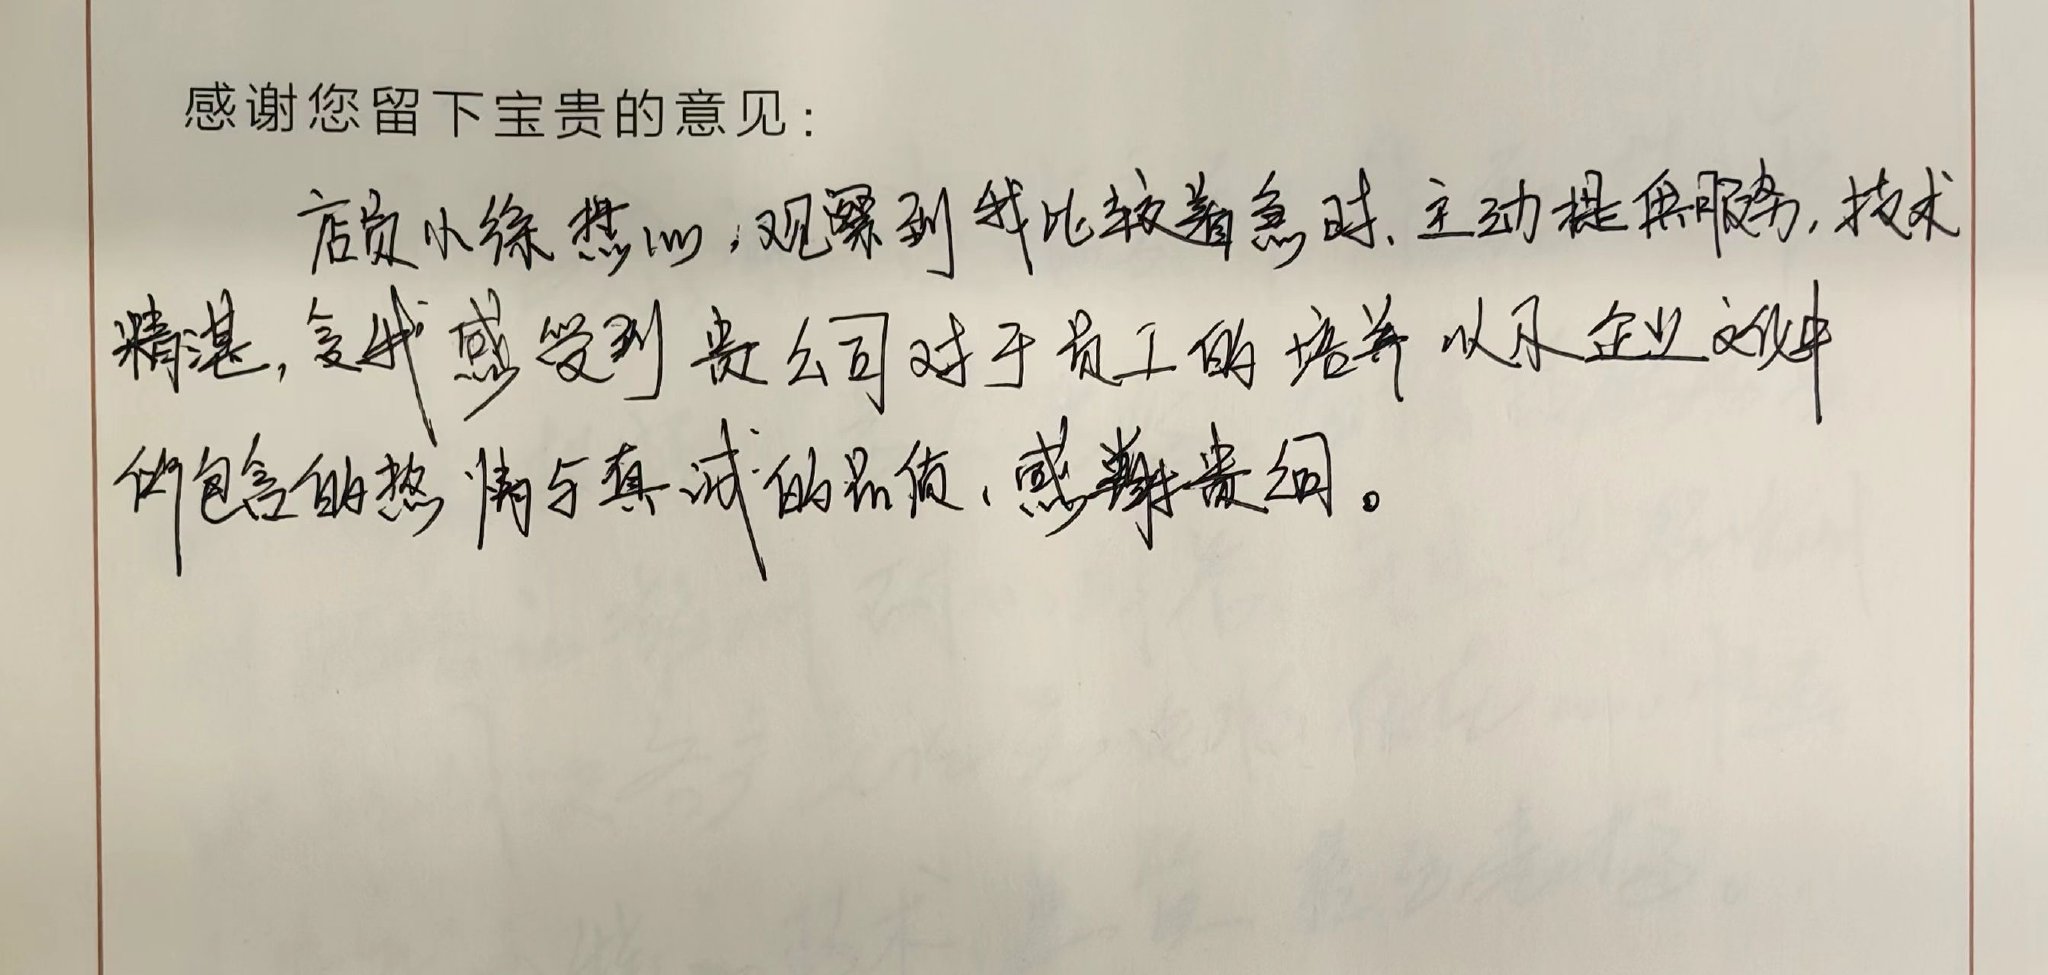 感谢您留下宝贵的意见：
店员小徐热心，观察到我比较着急时、主动提供服务，技术
精湛，令我感受到贵公司对于员工的培养以及企业文化中
所包含的热情与真诚的品质、感谢贵公司。